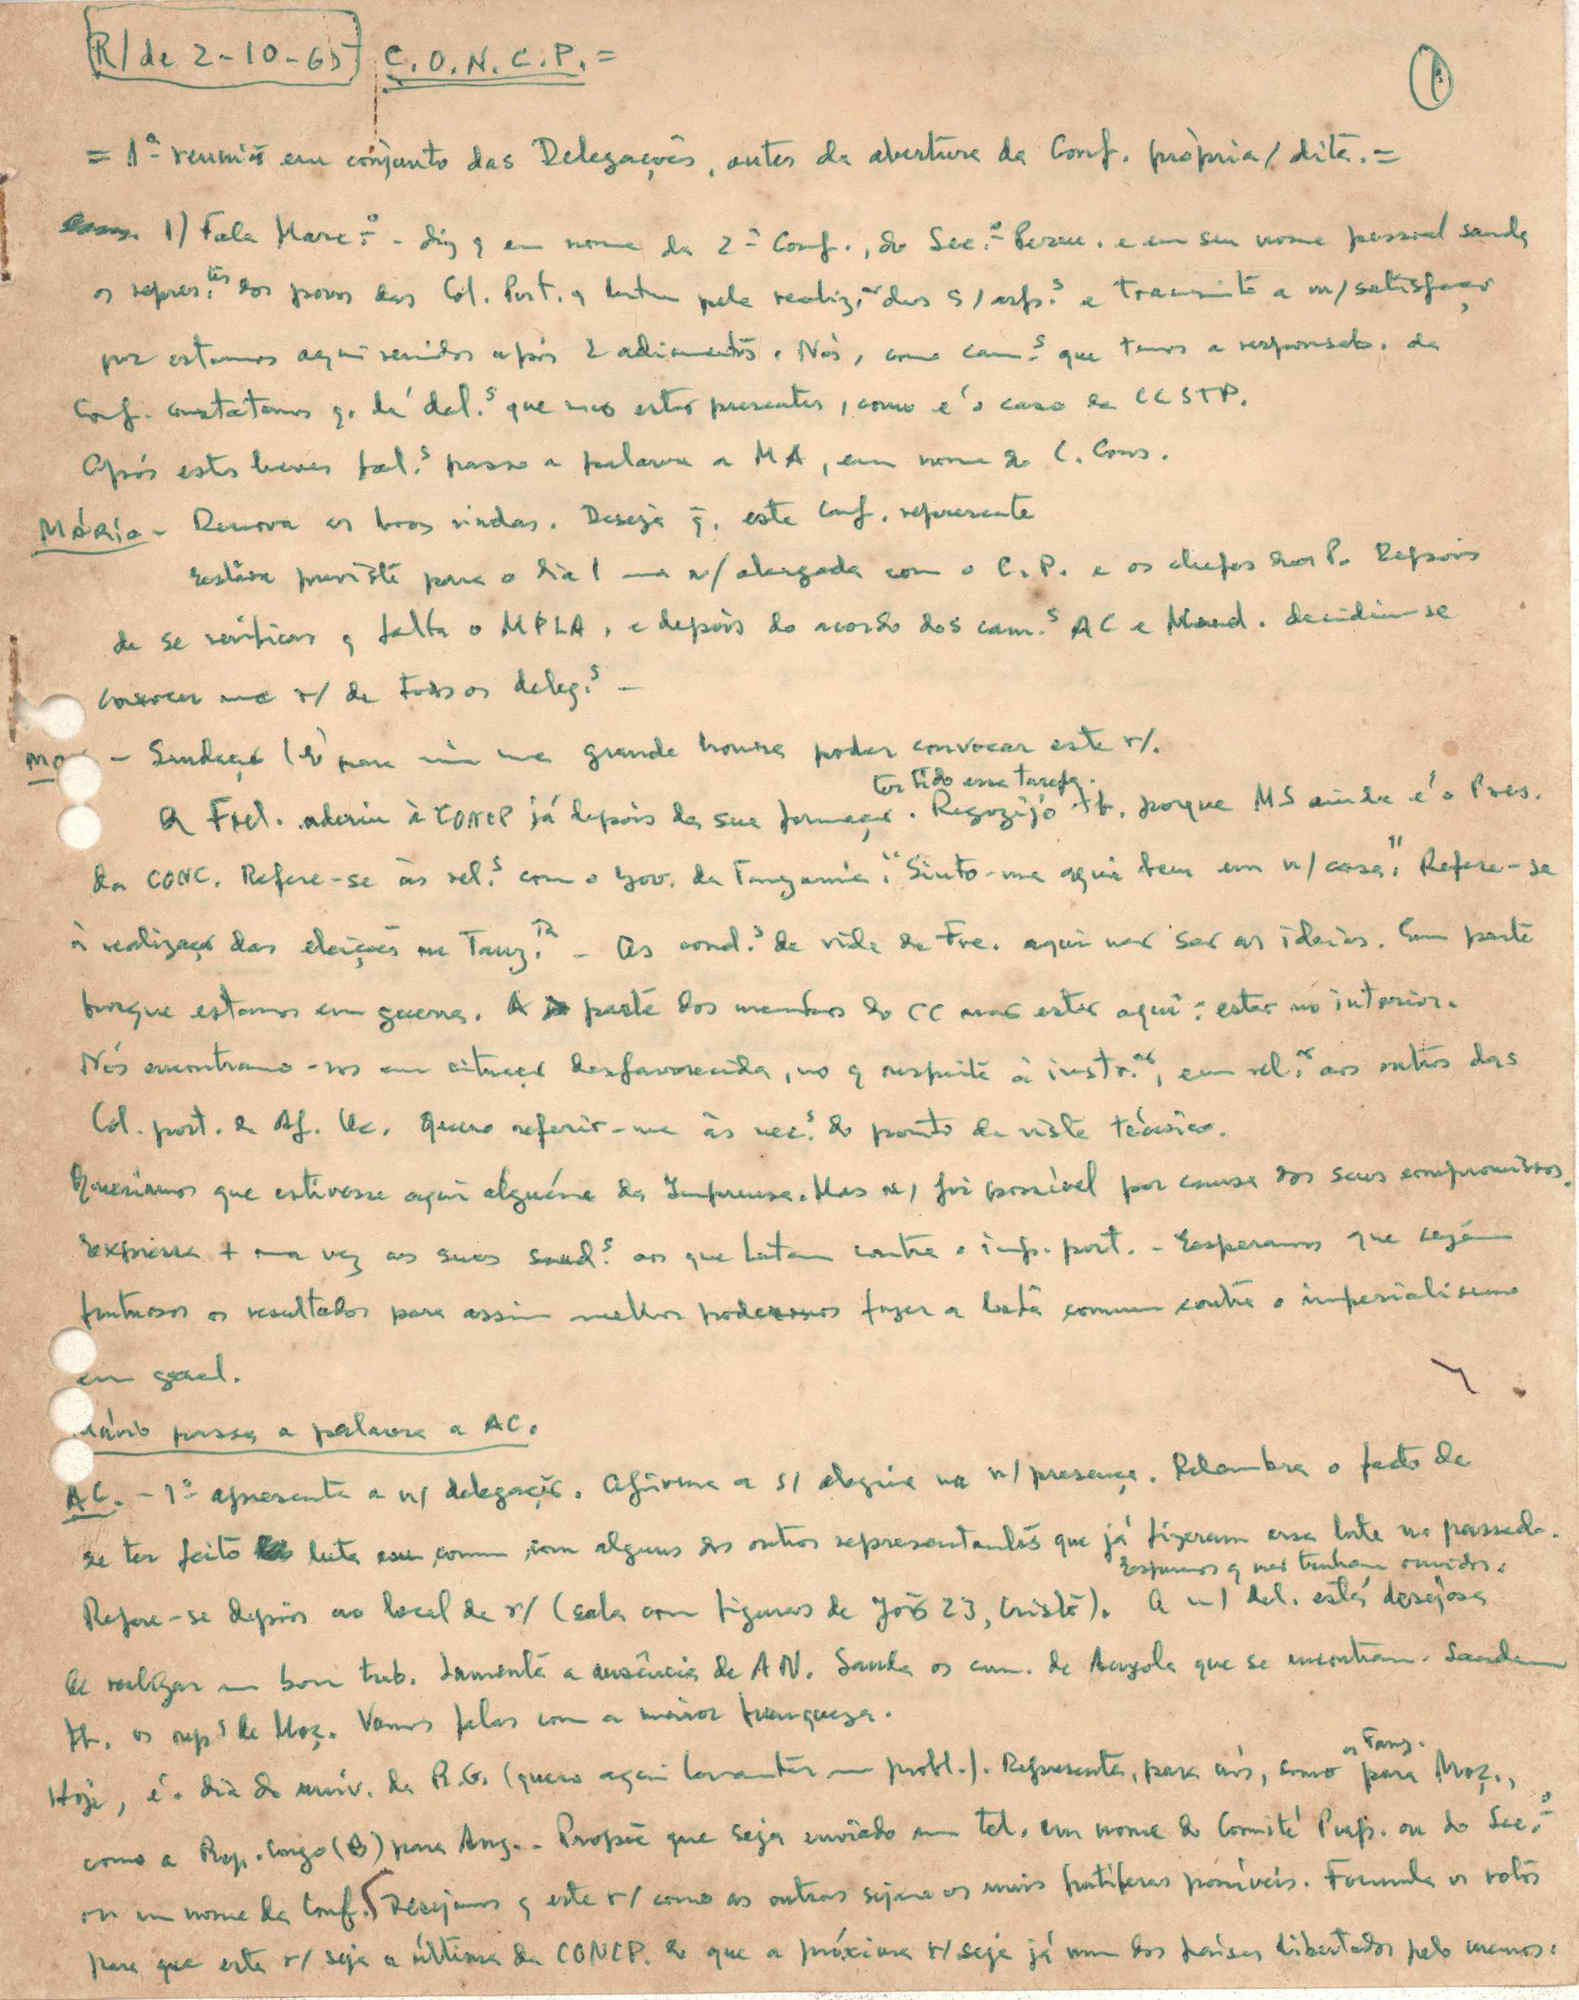 R/ de 2-10-65 C.O.N.C.P. =
= 1ª reunião em conjunto das Delegações, antes da abertura da Conf. própria/ dita. =
1) Fala Marc.º - diz q em nome da 2ª Conf., do Sec.º Perm. e em seu nome pessoal saúda
os repres.tes dos povos das Col. Port. q lutam pela realiz.ão das s/ asp.s e transmite a n/ satisfação
por estarmos aqui reunidos após 2 adiamentos. Nós, como cam.s que temos a responsab. da
Conf. constatamos q. há del.s que não estão presentes, como é o caso da CLSTP.
Após estas breves pal.s passo a palavra a MA, em nome do C. Cons.
Mário - Renova as boas vindas. Deseja q. esta Conf. represente
Estava prevista para o dia 1 uma r/ alargada com o C.P. e os chefes dos P. Depois
de se verificar q falta o MPLA, e depois do acordo dos cam.s AC e Mond. decidiu-se
convocar uma r/ de todos os deleg.s -
Mo - Saudação (É para mim uma grande honra poder convocar esta r/.
ter tido essa tarefa.
A Frel. aderiu à CONCP já depois da sua formação. Regozijo tb. porque MS ainda é o Pres.
da CONC. Refere-se às rel.s com o Gov. da Tanzania: "Sinto-me aqui bem em n/ casa". Refere-se
à realização das eleições na Tanz.ia - As cond.s de vida da Fre. aqui não são as ideias. Em parte
porque estamos em guerra. A parte dos membros do CC não estão aqui: estão no interior.
Nós encontramo-nos em situação desfavorecida, no q respeita à instr.ão, em rel.ão aos outros das
Col. port. da Af. Oc. Quero referir-me às nec.s do ponto de vista técnico.
Queríamos que estivesse aqui alguém da Imprensa. Mas n/ foi possível por causa dos seus compromissos.
Expressa + uma vez as suas saud.s aos que lutam contra o imp. port. - Esperamos que sejam
frutuosos os resultados para assim melhor podermos fazer a luta comum contra o imperialismo
em geral.
Mário passa a palavra a AC.
AC. - 1º apresenta a n/ delegação. Afirma a s/ alegria na n/ presença. Relembra o facto de
se ter feito luta em comum com alguns dos outros representantes que já fizeram essa luta no passado.
Esperamos q não tenham ouvidos.
Refere-se depois ao local da r/ (sala com figuras de João 23, Cristo). A n/ del. está desejosa
de realizar um bom trab. Lamenta a ausência de AN. Saúda os cam. de Angola que se encontram. Saudam
tb. os rep.s de Moç. Vamos falar com a maior franqueza.
os Tanz.
Hoje, é o dia do aniv. da R.G. (quero aqui levantar um probl.). Representa, para nós, como para Moç.,
como a Rep. Congo (B) para Ang. - Propõe que seja enviado um tel. em nome do Comité Prep. ou do Sec.º
ou em nome da Conf. Desejamos q esta r/ como as outras sejam as mais frutíferas possíveis. Formula os votos
para que esta r/ seja a última da CONCP. E que a próxima r/ seja já num dos países libertados pelo menos.